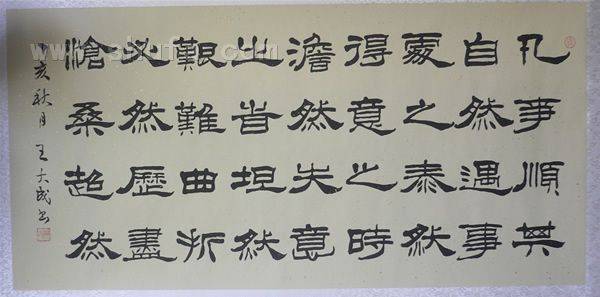 凡事順其
自然遇事
處之泰然
得意之時
澹然失意
之旹坦然
艱難曲折
必然歷盡
滄桑超然
亥秋月王大成书